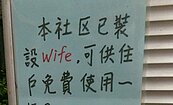 本社区已裝
設wife,可供住
戶免費使用一